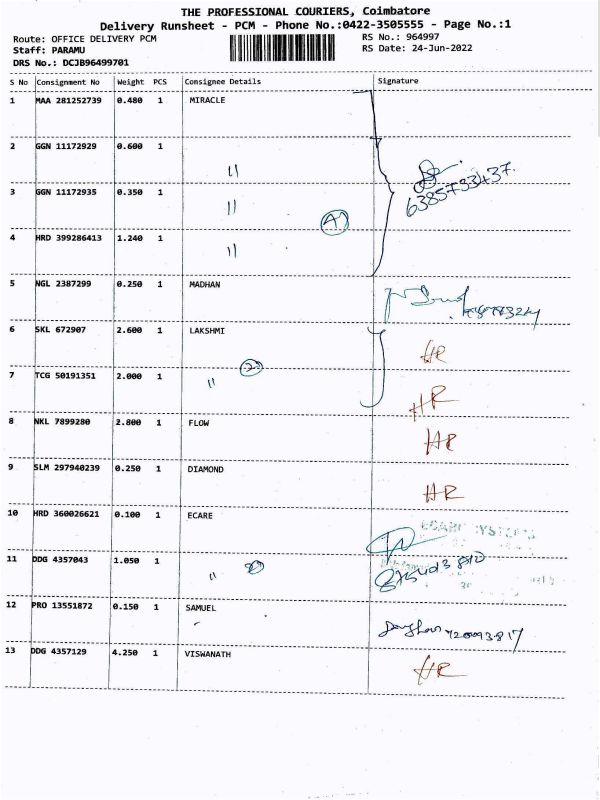 THE PROFESSIONAL COURIERS, Coimbatore
Delivery Runsheet - PCM - Phone No.:0422-3505555 - Page No.:1
Route: OFFICE DELIVERY PCM RS No.: 964997
Staff: PARAMU RS Date: 24-Jun-2022
DRS No.: DCJB96499701
S No Consignment No Weight PCS Consignee Details Signature
1 MAA 281252739 0.480 1 MIRACLE
2 GGN 11172929 0.600 1 "
6385733437.
3 GGN 11172935 0.350 1 "
4
4 HRD 399286413 1.240 1 "
5 NGL 2387299 0.250 1 MADHAN
6 SKL 672907 2.600 1 LAKSHMI HR
2
7 TCG 50191351 2.000 1 " HR
8 NKL 7899280 2.800 1 FLOW HR
9 SLM 297940239 0.250 1 DIAMOND HR
10 HRD 360026621 0.100 1 ECARE
11 DDG 4357043 1.050 1 "
12 PRO 13551872 0.150 1 SAMUEL
13 DDG 4357129 4.250 1 VISWANATH HR